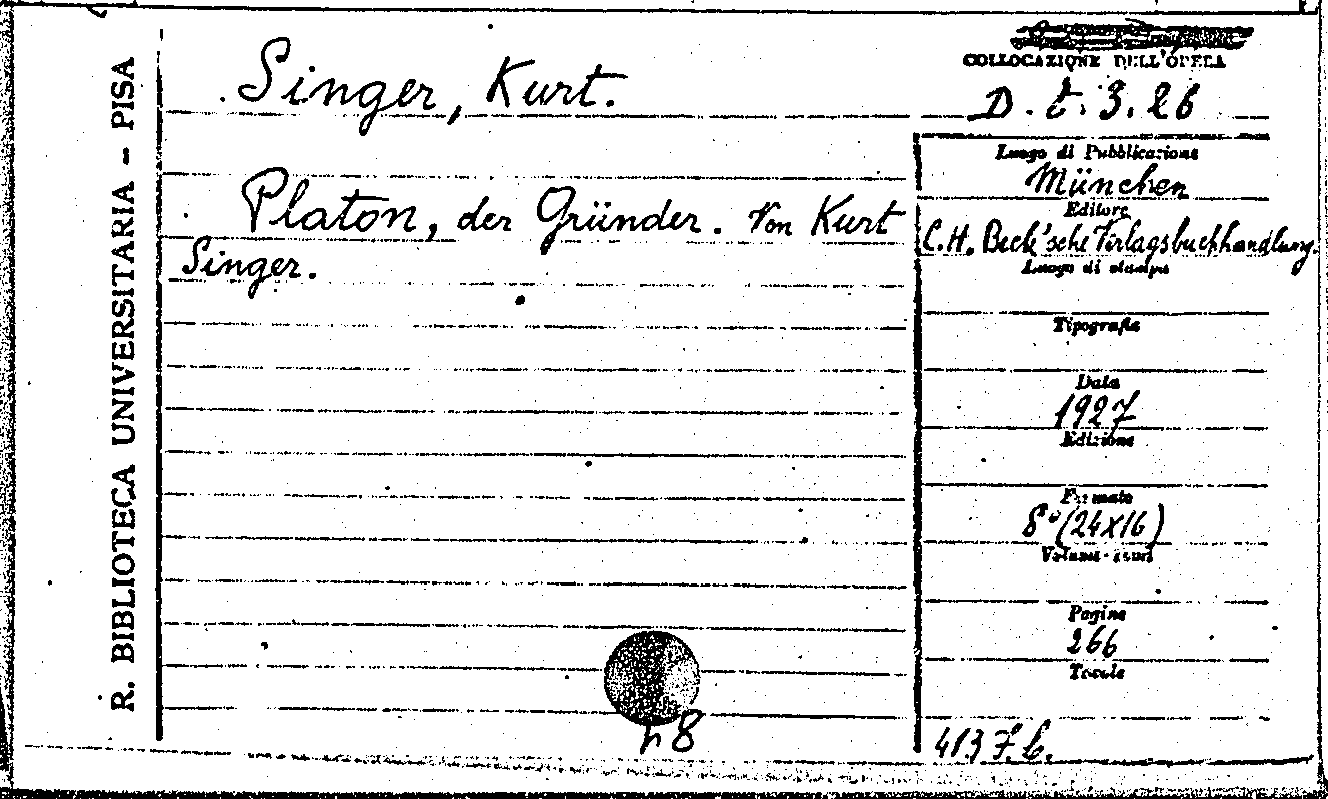 R. BIBLIOTECA UNIVERSITARIA - PISA
Singer, Kurt.
Platon, der Gründer. Von Kurt
Singer.
48
COLLOCAZIONE DELL'OPERA
D. t. 3. 26
Luogo di Pubblicazione
München
Editore
C.H. Beck'sche Verlagsbuchhandlung.
Luogo di stampa
Tipografia
Data
1927
Edizione
Formato
8° (24x16)
Volume
Pagine
266
Tavole